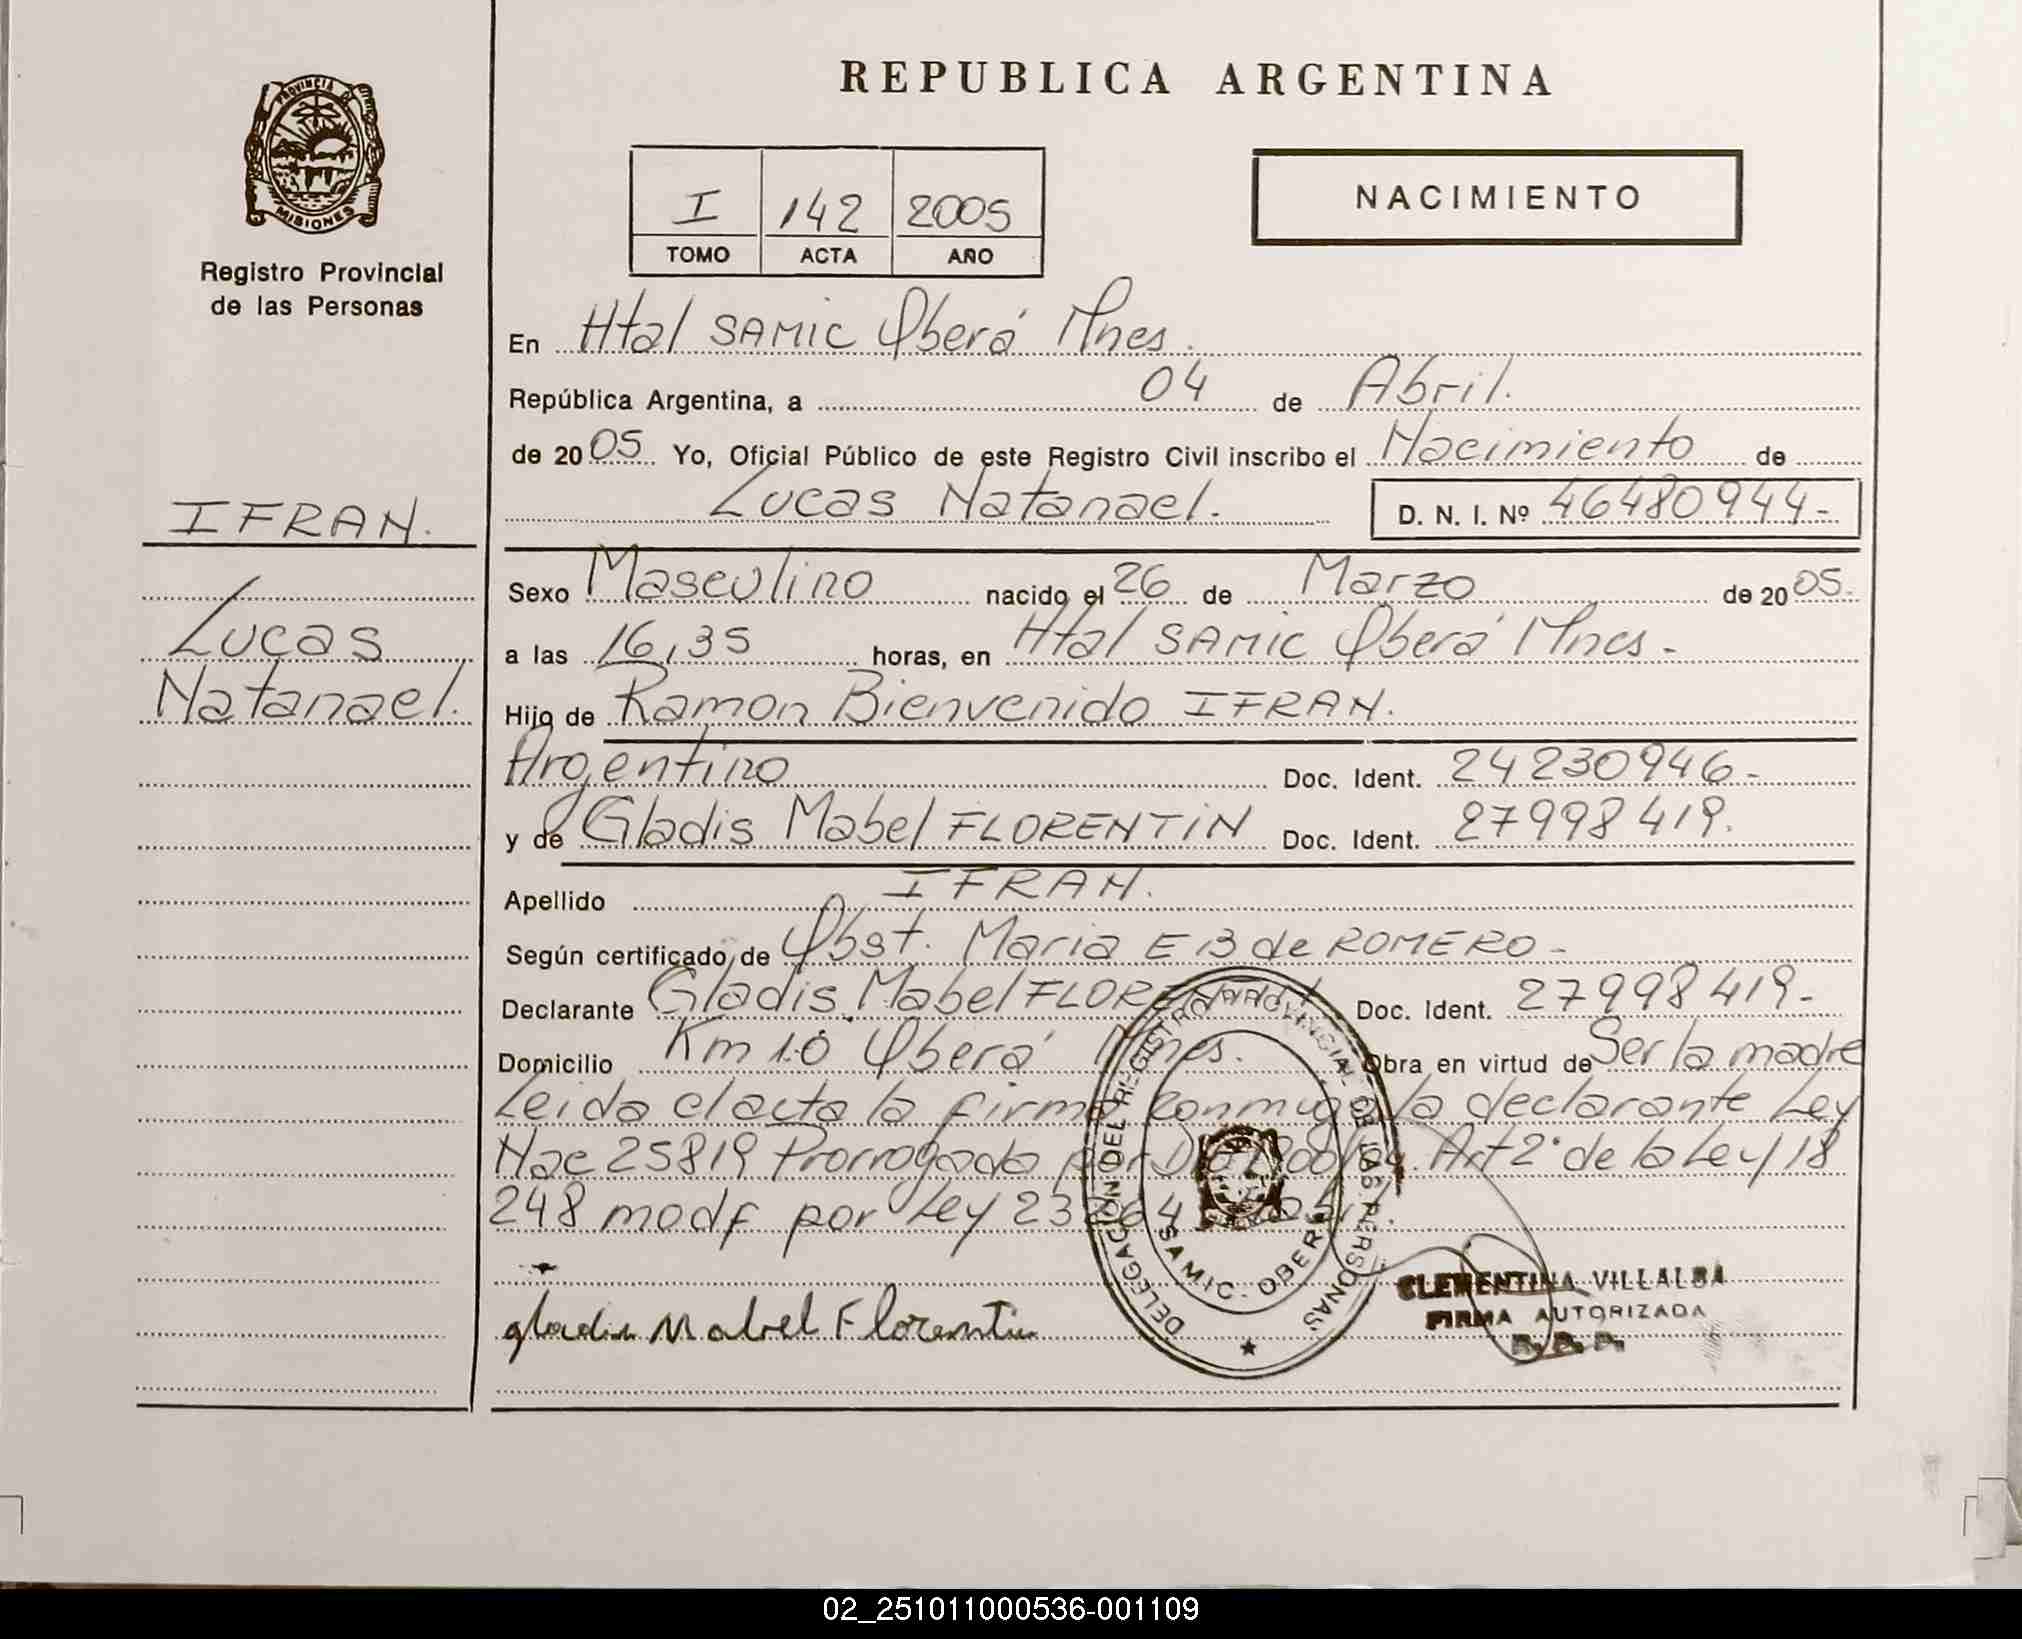 REPUBLICA ARGENTINA
PROVINCIA DE
MISIONES
Registro Provincial
de las Personas
I 142 2005
TOMO ACTA AÑO
NACIMIENTO
En Htal SAMIC Oberá Mnes.
República Argentina, a 04 de Abril.
de 2005 Yo, Oficial Público de este Registro Civil inscribo el Nacimiento de
Lucas Natanael. D. N. I. Nº 46480944-
IFRAN.
Lucas
Natanael.
Sexo Masculino nacido el 26 de Marzo de 2005.
a las 16,35 horas, en Htal SAMIC Oberá Mnes-
Hijo de Ramon Bienvenido IFRAN.
Argentino Doc. Ident. 24230946-
y de Gladis Mabel FLORENTIN Doc. Ident. 27998419.
Apellido IFRAN.
Según certificado de Obst. Maria E B de ROMERO-
Declarante Gladis Mabel FLORENTIN Doc. Ident. 27998419-
Domicilio Km 10 Oberá Mnes. Obra en virtud de Ser la madre
Leida el acta la firma conmigo la declarante Ley
Nac 25819 Prorrogada por Art 2° de la Ley 18
248 modf por Ley 23
DELEGACION DEL REGISTRO PROVINCIAL DE LAS PERSONAS
SAMIC. OBERA
gladis Mabel Florentin
CLEMENTINA VILLALBA
FIRMA AUTORIZADA
02_251011000536-001109